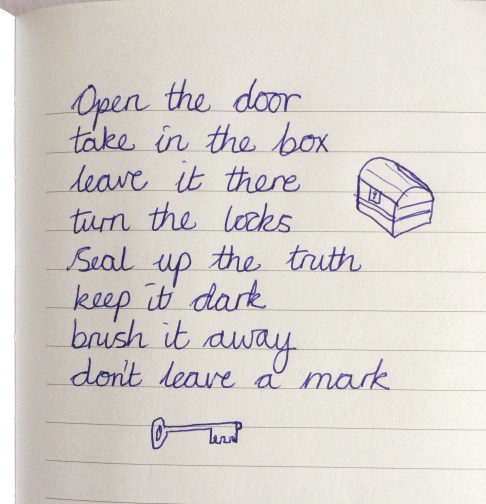 Open the door
take in the box
leave it there
turn the locks
Seal up the truth
keep it dark
brush it away
don't leave a mark